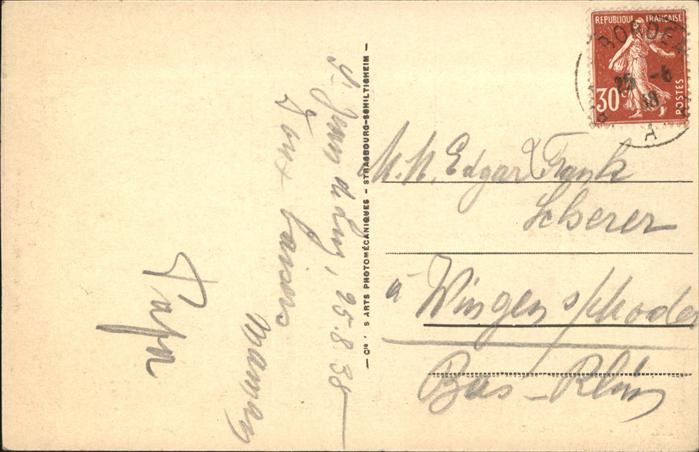 St Jean de Luz, 25.8.38
Doux baisers
Maman
Papa
Cie DES ARTS PHOTOMÉCANIQUES - STRASBOURG-SCHILTIGHEIM -
REPUBLIQUE FRANÇAISE
30c
POSTES
25 -8
38
A
M.M. Edgar & Frank
Scherer
à Wingen s/Moder
Bas-Rhin